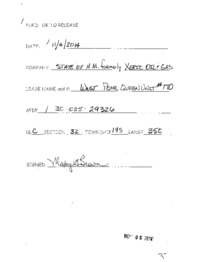 DATE: 11/4/2014
COMPANY STATE OF N.M. formerly XERIC OIL & GAS
LEASE NAME and #: WEST PEARL QUEEN UNIT #170
API# 30-025-29326
UL C SECTION 32 TOWNSHIP 19S RANGE 35E
SIGNED